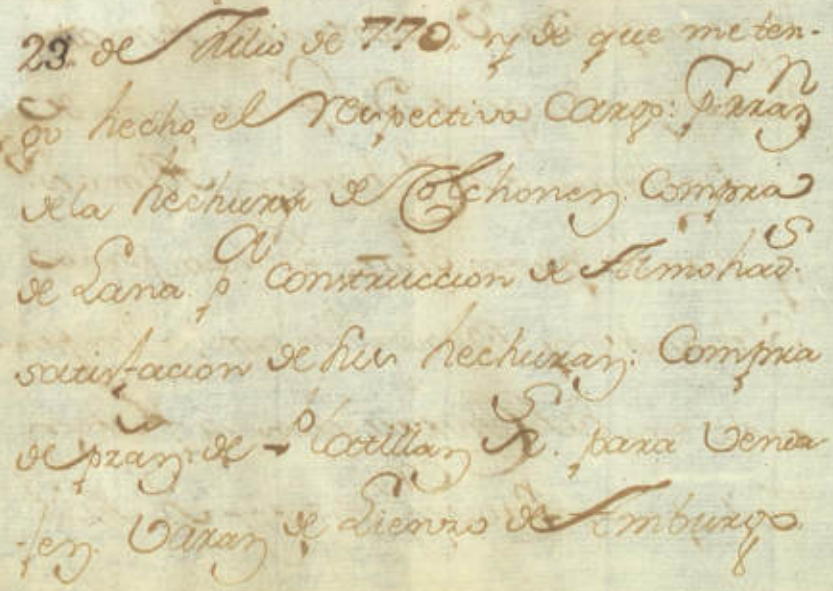 23. de Julio de 770. y de que me ten-
go hecho el respectivo Cargo: p.r raz.n
de la hechura de Colchones. Compra
de Lana p.a construccion de Almohad.s
satisfacion de sus hechuras: Compra
de pzas de Platillas R.s para Venda
jes. Varas de Lienzo de Amburgo